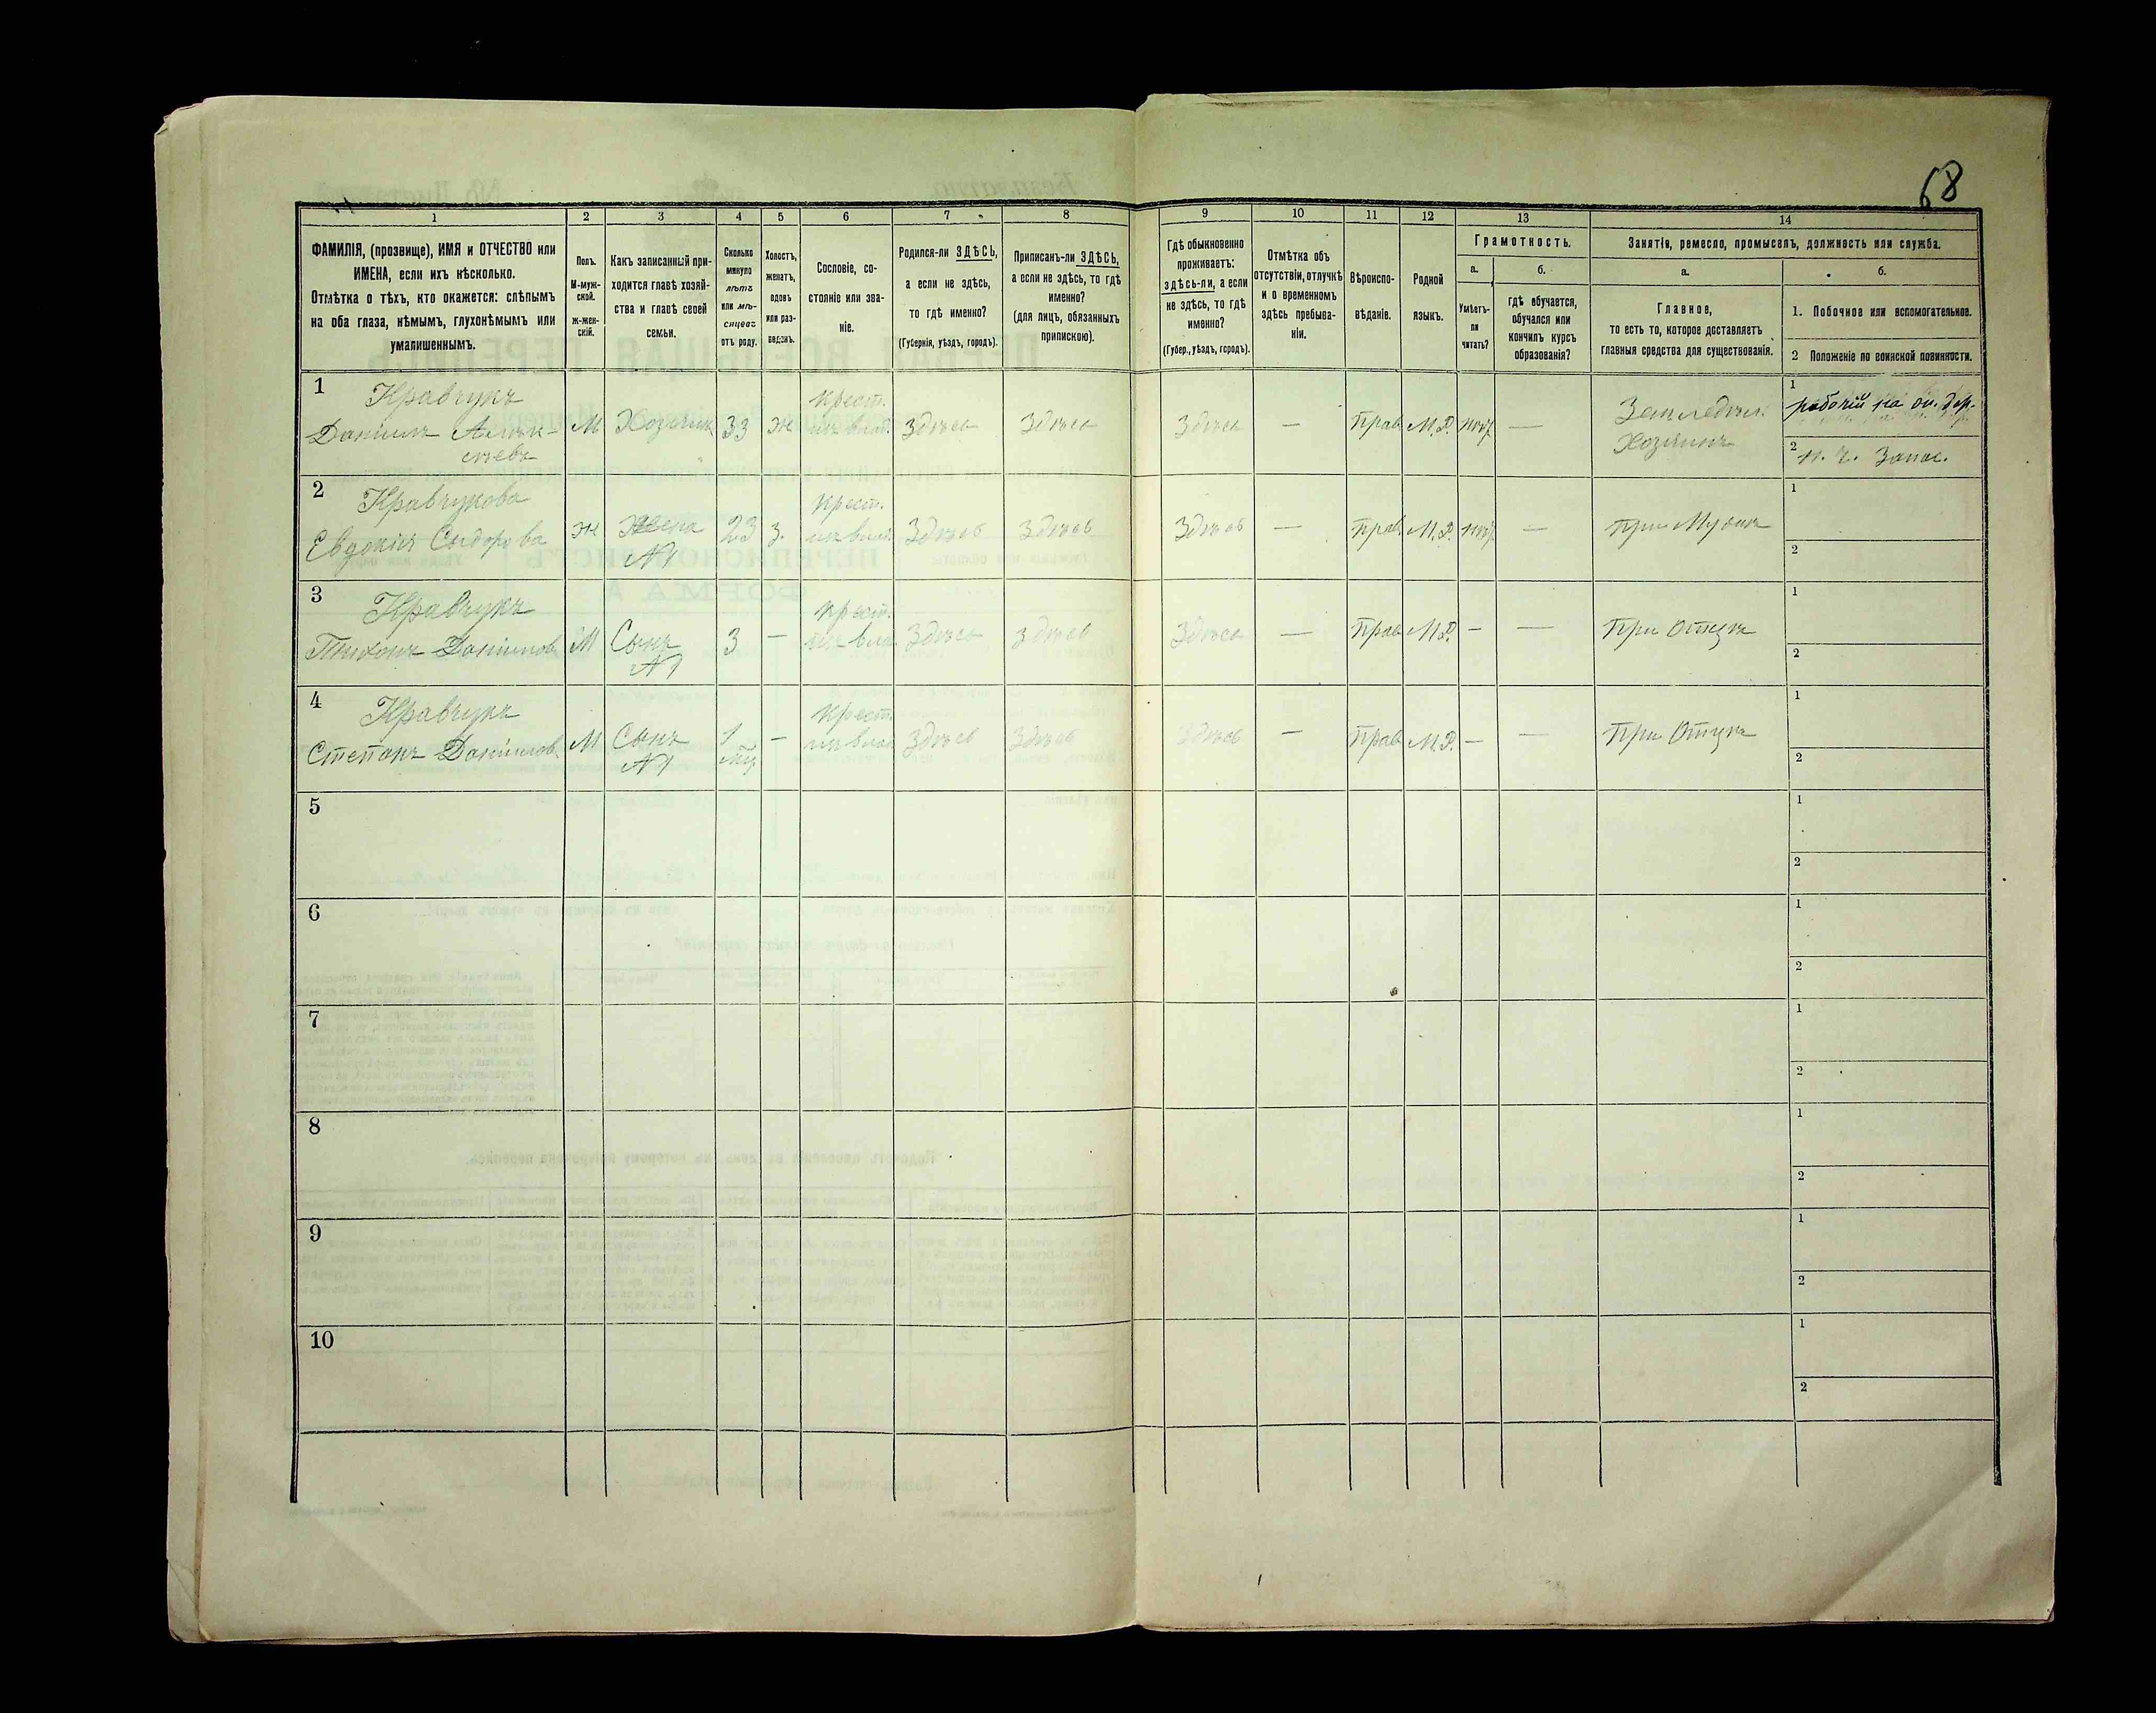 68
1 2 3 4 5 6 7 8 9 10 11 12 13 14
ФАМИЛІЯ, (прозвище), ИМЯ и ОТЧЕСТВО или
ИМЕНА, если ихъ нѣсколько.
Отмѣтка о тѣхъ, кто окажется: слѣпымъ
на оба глаза, нѣмымъ, глухонѣмымъ или
умалишеннымъ.
Полъ.
М-муж-
ской.
ж-жен-
скій.
Какъ записанный при-
ходится главѣ хозяй-
ства и главѣ своей
семьи.
Сколько
минуло
лѣтъ
или мѣ-
сяцевъ
отъ роду.
Холостъ,
женатъ,
вдовъ
или раз-
веденъ.
Сословіе, со-
стояніе или зва-
ніе.
Родился-ли ЗДѢСЬ,
а если не здѣсь,
то гдѣ именно?
(Губернія, уѣздъ, городъ).
Приписанъ-ли ЗДѢСЬ,
а если не здѣсь, то гдѣ
именно?
(для лицъ, обязанныхъ
припискою).
Гдѣ обыкновенно
проживаетъ:
здѣсь-ли, а если
не здѣсь, то гдѣ
именно?
(Губер., уѣздъ, городъ).
Отмѣтка объ
отсутствіи, отлучкѣ
и о временномъ
здѣсь пребыва-
ніи.
Вѣроиспо-
вѣданіе.
Родной
языкъ.
Грамотность.
а.
Умѣетъ-
ли
читать?
б.
гдѣ обучается,
обучался или
кончилъ курсъ
образованія?
Занятіе, ремесло, промыселъ, должность или служба.
а.
Главное,
то есть то, которое доставляетъ
главныя средства для существованія.
б.
1. Побочное или вспомогательное.
2 Положеніе по воинской повинности.
1 Кравчукъ Крест. 1 рабочій на
Даніилъ Алек- М Хозяинъ 33 ж Здѣсь Здѣсь Здѣсь — Прав М.Р. — Земледѣл.
сѣевъ Хозяинъ 2 н. ч. Запас.
2 Кравчукова Крест. 1
Евдокія Сыдорова ж Жена 23 з. Здѣсь Здѣсь Здѣсь — Прав М.Р. — При Мужѣ
№1 2
3 Кравчукъ Крест. 1
Тихонъ Даніиловъ М Сынъ 3 — Здѣсь Здѣсь Здѣсь — Прав М.Р. — — При Отцѣ
№1 2
4 Кравчукъ Крест. 1
Степанъ Даніиловъ М Сынъ 1 — Здѣсь Здѣсь Здѣсь — Прав М.Р. — — При Отцѣ
№1 2
5 1
2
6 1
2
7 1
2
8 1
2
9 1
2
10 1
2